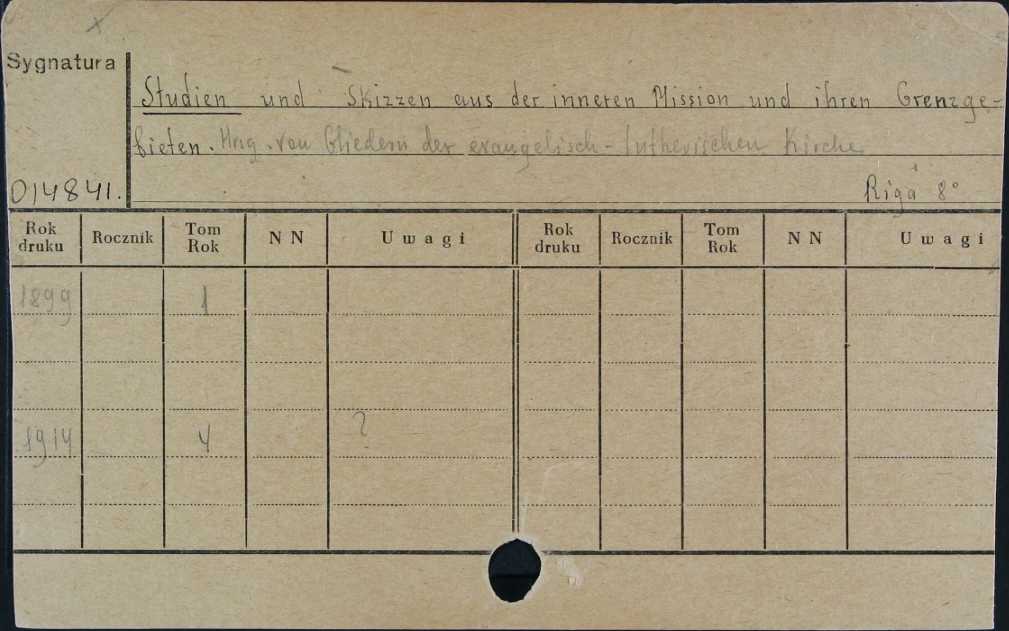 x
Sygnatura
Studien und Skizzen aus der inneren Mission und ihren Grenzge-
bieten. Hrsg. von Gliedern der evangelisch-lutherischen Kirche
014841.
Riga 8°
Rok druku Rocznik Tom Rok NN Uwagi Rok druku Rocznik Tom Rok NN Uwagi
1899 1
1914 4 ?